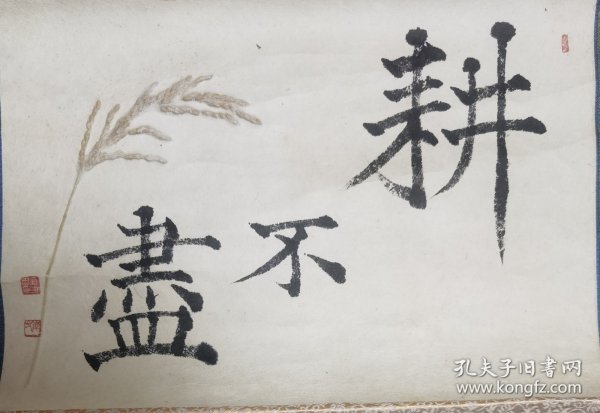 耕
不
盡
孔夫子旧书网
www.kongfz.com